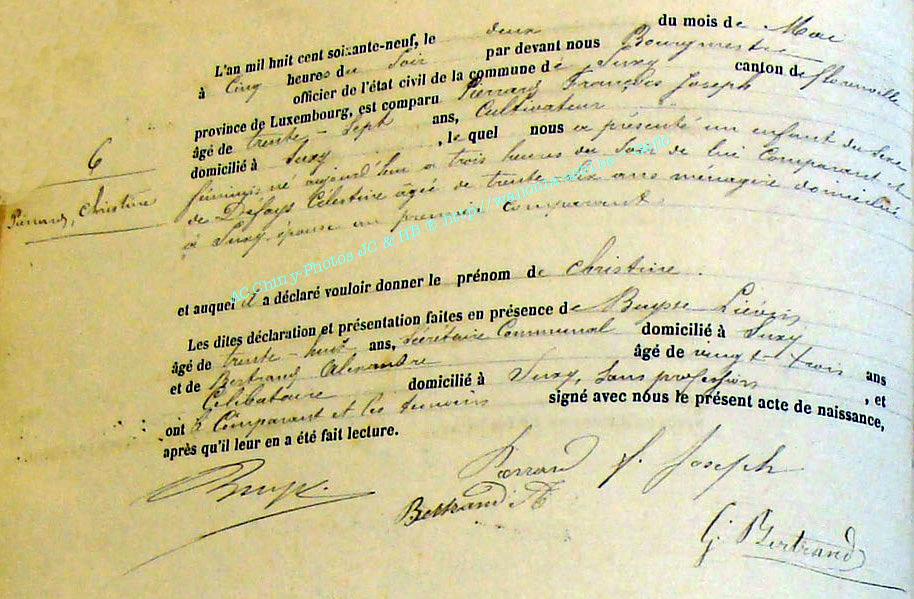 6
Pierrard, Christine
L'an mil huit cent soixante-neuf, le deux du mois de Mai
à Cinq heures du Soir par devant nous Bourgmestre
officier de l'état civil de la commune de Suxy canton de florenville
province de Luxembourg, est comparu Pierrard François Joseph
âgé de trente-Sept ans, Cultivateur
domicilié à Suxy , le quel nous a présenté un enfant du Sexe
féminin né aujourd'hui a trois heures du Soir de lui Comparant et
de Défays Célestine agée de trente six ans ménagère domiciliée
a Suxy épouse au premier Comparant.
et auquel il a déclaré vouloir donner le prénom de Christine.
Les dites déclaration et présentation faites en présence de Buysse Liévin
âgé de trente-huit ans, Sécrétaire Communal domicilié à Suxy
et de Bertrand Alexandre âgé de vingt-trois ans
Célibataire domicilié à Suxy, Sans profession , et
ont le Comparant et les temoins signé avec nous le présent acte de naissance,
après qu'il leur en a été fait lecture.
Buysse
Pierrard f. Joseph
Bertrand A
G. Bertrand
AC Chiny-Photos JC & HB ©